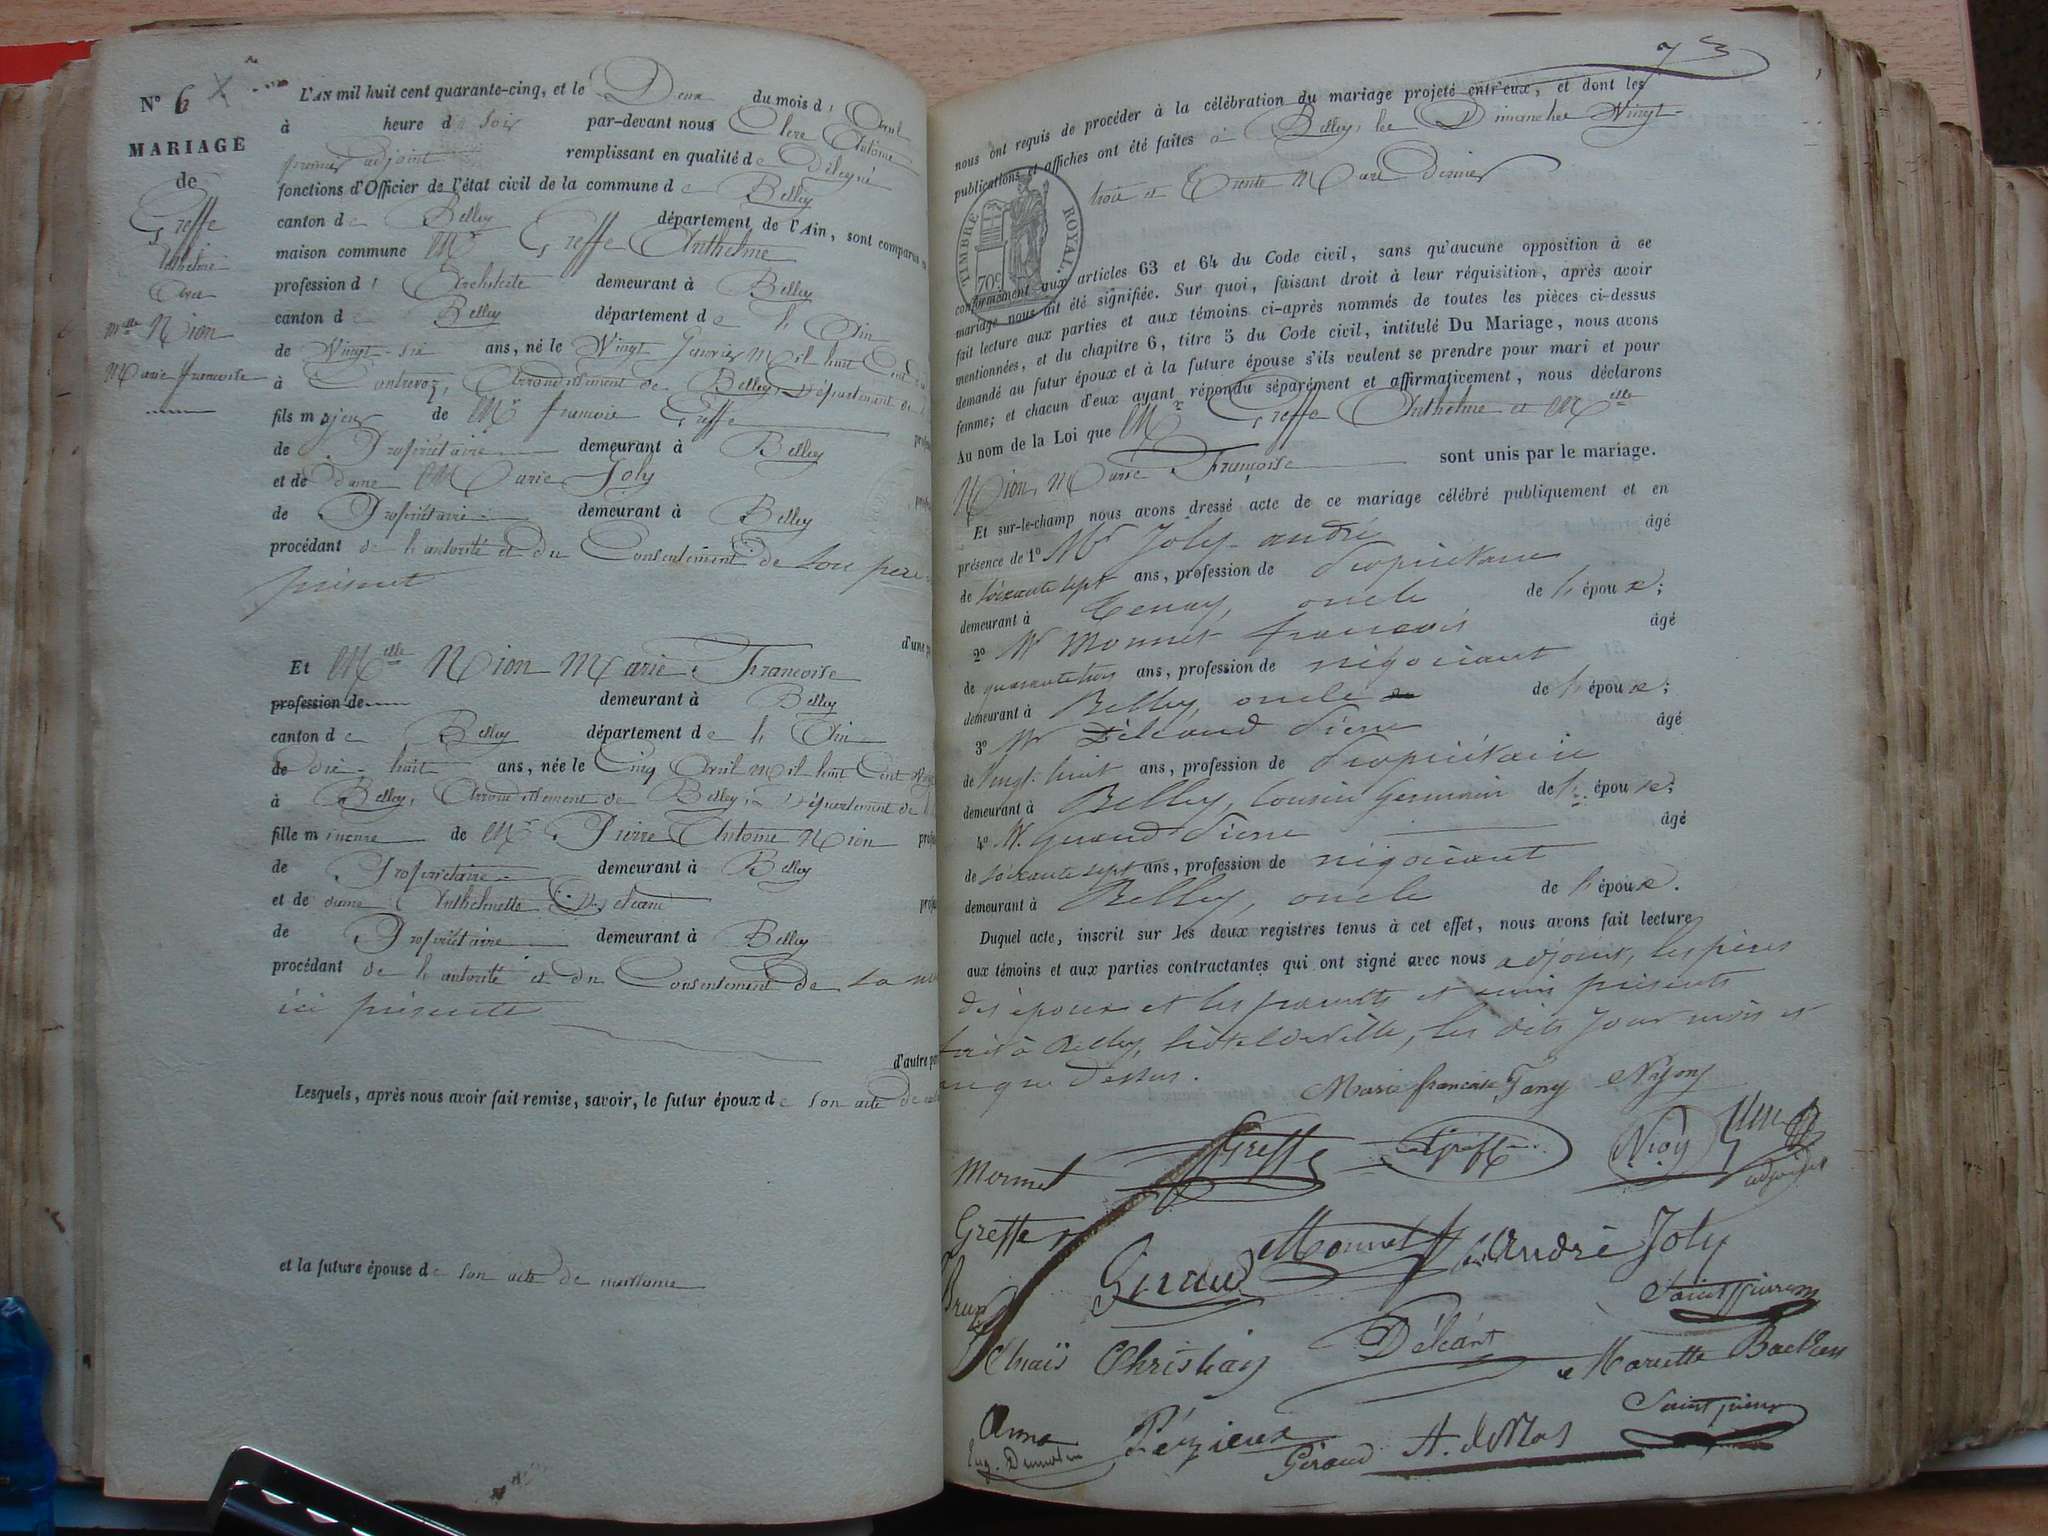 N° 6
MARIAGE
de
Greffe
Anthelme
Avec
Mlle Nion
Marie françoise
L'AN mil huit cent quarante-cinq, et le Deux du mois d' Avril
à heure de Soir par-devant nous Clerc Antoine
premier adjoint remplissant en qualité de Délégué
fonctions d'Officier de l'état civil de la commune de Belley
canton de Belley département de l'Ain, sont comparus
maison commune Mr Greffe Anthelme
profession d' Architecte demeurant à Belley
canton de Belley département de l'Ain
de Vingt-six ans, né le Vingt Janvier Mil huit Cent
à Contrevoz, Arrondissement de Belley, Département de
fils majeur de Mr françois Greffe
de Propriétaire demeurant à Belley
et de dame Marie Joly
de Propriétaire demeurant à Belley
procédant de l'autorité et du Consentement de son père
présent
d'une
Et Mlle Nion Marie Françoise
profession de demeurant à Belley
canton de Belley département de l'Ain
de dix-huit ans, née le Cinq Avril Mil huit Cent
à Belley, Arrondissement de Belley, Département de
fille mineure de Mr Pierre Antoine Nion
de Propriétaire demeurant à Belley
et de dame Anthelmette
de Propriétaire demeurant à Belley
procédant de l'autorité et du Consentement de sa
ici présente
d'autre
Lesquels, après nous avoir fait remise, savoir, le futur époux de son acte de
et la future épouse de son acte de naissance
73
nous ont requis de procéder à la célébration du mariage projeté entr'eux, et dont les
publications et affiches ont été faites à Belley, les Dimanches Vingt-
trois et Trente Mars Dernier
TIMBRE ROYAL.
70c
conformément aux articles 63 et 64 du Code civil, sans qu'aucune opposition à ce
mariage nous ait été signifiée. Sur quoi, faisant droit à leur réquisition, après avoir
fait lecture aux parties et aux témoins ci-après nommés de toutes les pièces ci-dessus
mentionnées, et du chapitre 6, titre 5 du Code civil, intitulé Du Mariage, nous avons
demandé au futur époux et à la future épouse s'ils veulent se prendre pour mari et pour
femme; et chacun d'eux ayant répondu séparément et affirmativement, nous déclarons
Au nom de la Loi que Mr Greffe Anthelme et Mlle
Nion Marie Françoise sont unis par le mariage.
Et sur-le-champ nous avons dressé acte de ce mariage célébré publiquement et en
présence de 1° Mr Joly andré âgé
de soixante sept ans, profession de Propriétaire
demeurant à Tenay, oncle de l'époux;
2° Mr Monnet françois âgé
de quarante trois ans, profession de négociant
demeurant à Belley, oncle de l'époux;
3° Mr Délécand Pierre âgé
de vingt-huit ans, profession de Propriétaire
demeurant à Belley, Cousin Germain de l'épouse;
4° Mr Giraud Pierre âgé
de soixante sept ans, profession de négociant
demeurant à Belley, oncle de l'épouse.
Duquel acte, inscrit sur les deux registres tenus à cet effet, nous avons fait lecture
aux témoins et aux parties contractantes qui ont signé avec nous adjoint, les pères
des époux et les parents et amis présents
fait à Belley, hôtel de ville, les dits jour mois et
an que dessus.
Marie françoise Fany Nyon
Greffe Greffe Nion
adjoint
Monnet
Greffe
Giraud Monnet André Joly
Christian Mariette
Anna Pézieux
Géraud A. de Mas